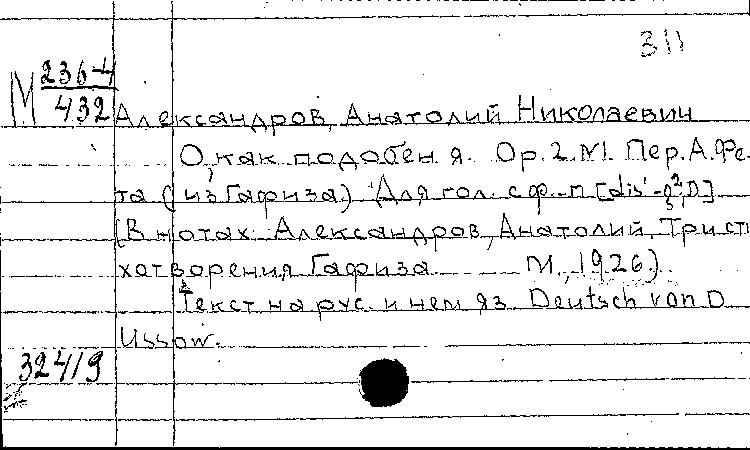 311
М 236-4
432
Александров, Анатолий Николаевич
О, как подобен я. Op. 2. №1. Пер. А. Фе-
та (из Гафиза). Для гол. с ф.-п. [dis¹-g²; D]
(В нотах: Александров, Анатолий. Три сти
хотворения Гафиза. М., 1926).
Текст на рус. и нем. яз. Deutsch von D.
Ussow.
324/9